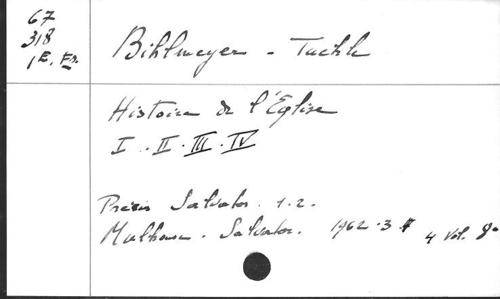 67
318
1 E. Fr.
Bihlmeyer - Tuchle
Histoire de l'Eglise
I . II . III . IV
Précis Salvator. 1.2.
Mulhouse. Salvator. 1962.3 4 Vol. 8°